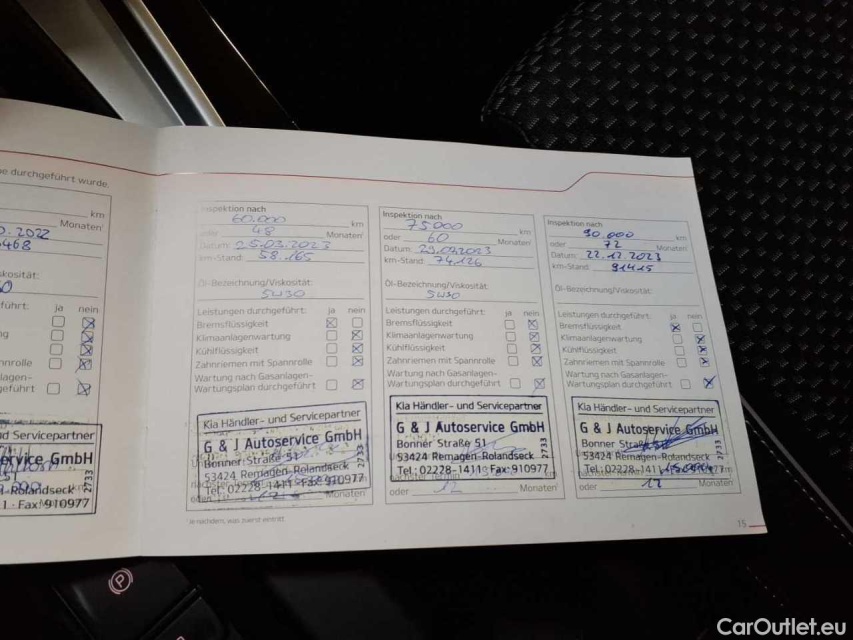 e durchgeführt wurde.
km
Monaten
468
skosität:
führt: ja nein
ng
nrolle
agen-
geführt
d Servicepartner
ervice GmbH
-Rolandseck
1 · Fax: 910977
2733
Inspektion nach
60.000 km
oder 48 Monaten
Datum: 25.03.2023
km-Stand: 58.165
Öl-Bezeichnung/Viskosität:
5W30
Leistungen durchgeführt: ja nein
Bremsflüssigkeit
Klimaanlagenwartung
Kühlflüssigkeit
Zahnriemen mit Spannrolle
Wartung nach Gasanlagen-
Wartungsplan durchgeführt
Kia Händler- und Servicepartner
G & J Autoservice GmbH
Bonner Straße 51
53424 Remagen-Rolandseck
Tel.: 02228-1411 · Fax: 910977
oder Monaten
je nachdem, was zuerst eintritt.
Inspektion nach
75.000 km
oder 60 Monaten
Datum:
km-Stand: 74.126
Öl-Bezeichnung/Viskosität:
5W30
Leistungen durchgeführt: ja nein
Bremsflüssigkeit
Klimaanlagenwartung
Kühlflüssigkeit
Zahnriemen mit Spannrolle
Wartung nach Gasanlagen-
Wartungsplan durchgeführt
Kia Händler- und Servicepartner
G & J Autoservice GmbH
Bonner Straße 51
53424 Remagen-Rolandseck
Tel.: 02228-1411 Fax: 910977
2733
oder 12 Monaten
Inspektion nach
90.000 km
oder 72 Monaten
Datum: 22.12.2023
km-Stand: 91415
Öl-Bezeichnung/Viskosität:
Leistungen durchgeführt: ja nein
Bremsflüssigkeit
Klimaanlagenwartung
Kühlflüssigkeit
Zahnriemen mit Spannrolle
Wartung nach Gasanlagen-
Wartungsplan durchgeführt
Kia Händler- und Servicepartner
G & J Autoservice GmbH
Bonner Straße
53424 Remagen-Rolandseck
Tel.: 02228-141
2733
oder 12 Monaten
15
CarOutlet.eu